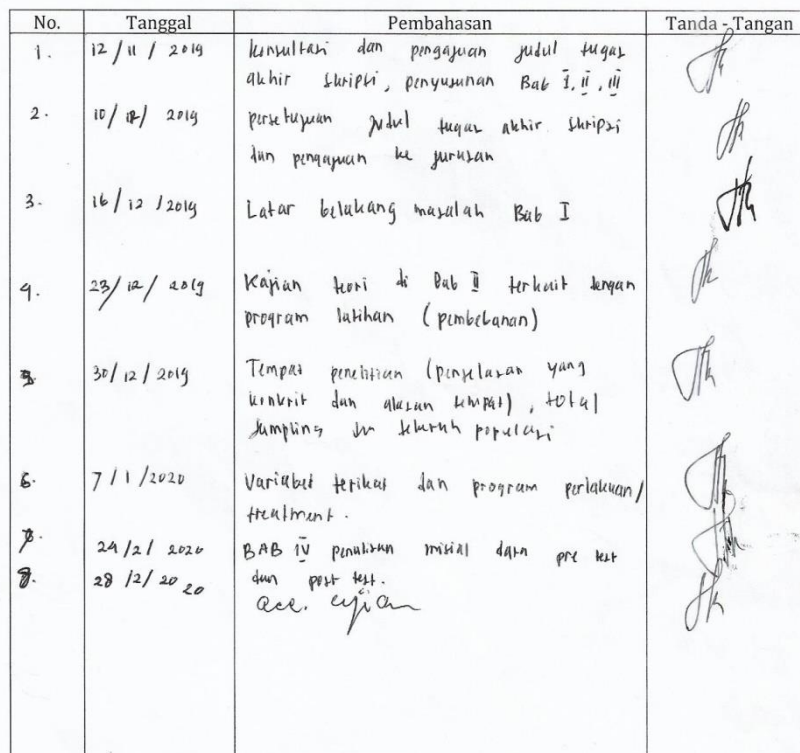 No. Tanggal Pembahasan Tanda - Tangan
1. 12 / 11 / 2019 konsultasi dan pengajuan judul tugas
akhir skripsi, penyusunan Bab I, II, III
2. 10 / 12 / 2019 persetujuan judul tugas akhir skripsi
dan pengajuan ke jurusan
3. 16 / 12 / 2019 Latar belakang masalah Bab I
4. 23 / 12 / 2019 Kajian teori di Bab II terkait dengan
program latihan (pembebanan)
5. 30 / 12 / 2019 Tempat penelitian (penjelasan yang
konkrit dan alasan tempat), total
sampling seluruh populasi
6. 7 / 1 / 2020 Variabel terikat dan program perlakuan/
treatment.
7. 24 / 2 / 2020 BAB IV penulisan data pre test
dan post test.
8. 28 / 2 / 2020 acc. ujian